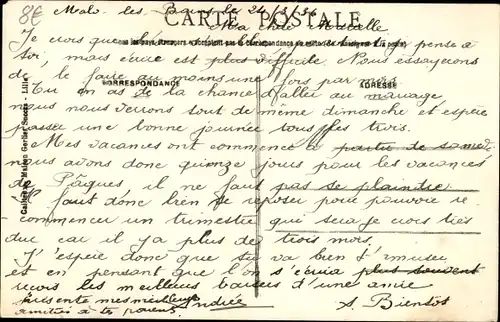 8€
CARTE POSTALE
Malo les Bains le 24/3/36
Ma chère Marcelle
Tous les pays étrangers n'acceptent pas la correspondance au verso
Je crois que pense à
toi, mais écrire est plus difficile. Nous essayerons
de le faire au moins une fois par mois.
CORRESPONDANCE
ADRESSE
Tu en as de la chance d'aller au mariage
nous nous verrons tout de même dimanche et espère
passer une bonne journée toutes trois.
Mes vacances ont commencé à partir de samedi
nous avons donc quinze jours pour les vacances
de Pâques il ne faut pas se plaindre
Il faut donc bien se reposer pour pouvoir re-
commencer un trimestre qui sera je crois très
dur car il y a plus de trois mois.
J'espère donc que tu va bien t'amuser
et en pensant que l'on s'écrira plus souvent
reçois les meilleurs baisers d'une amie
Présente mes meilleures
amitiés à tes parents
Andrée
A Bientôt
Lille